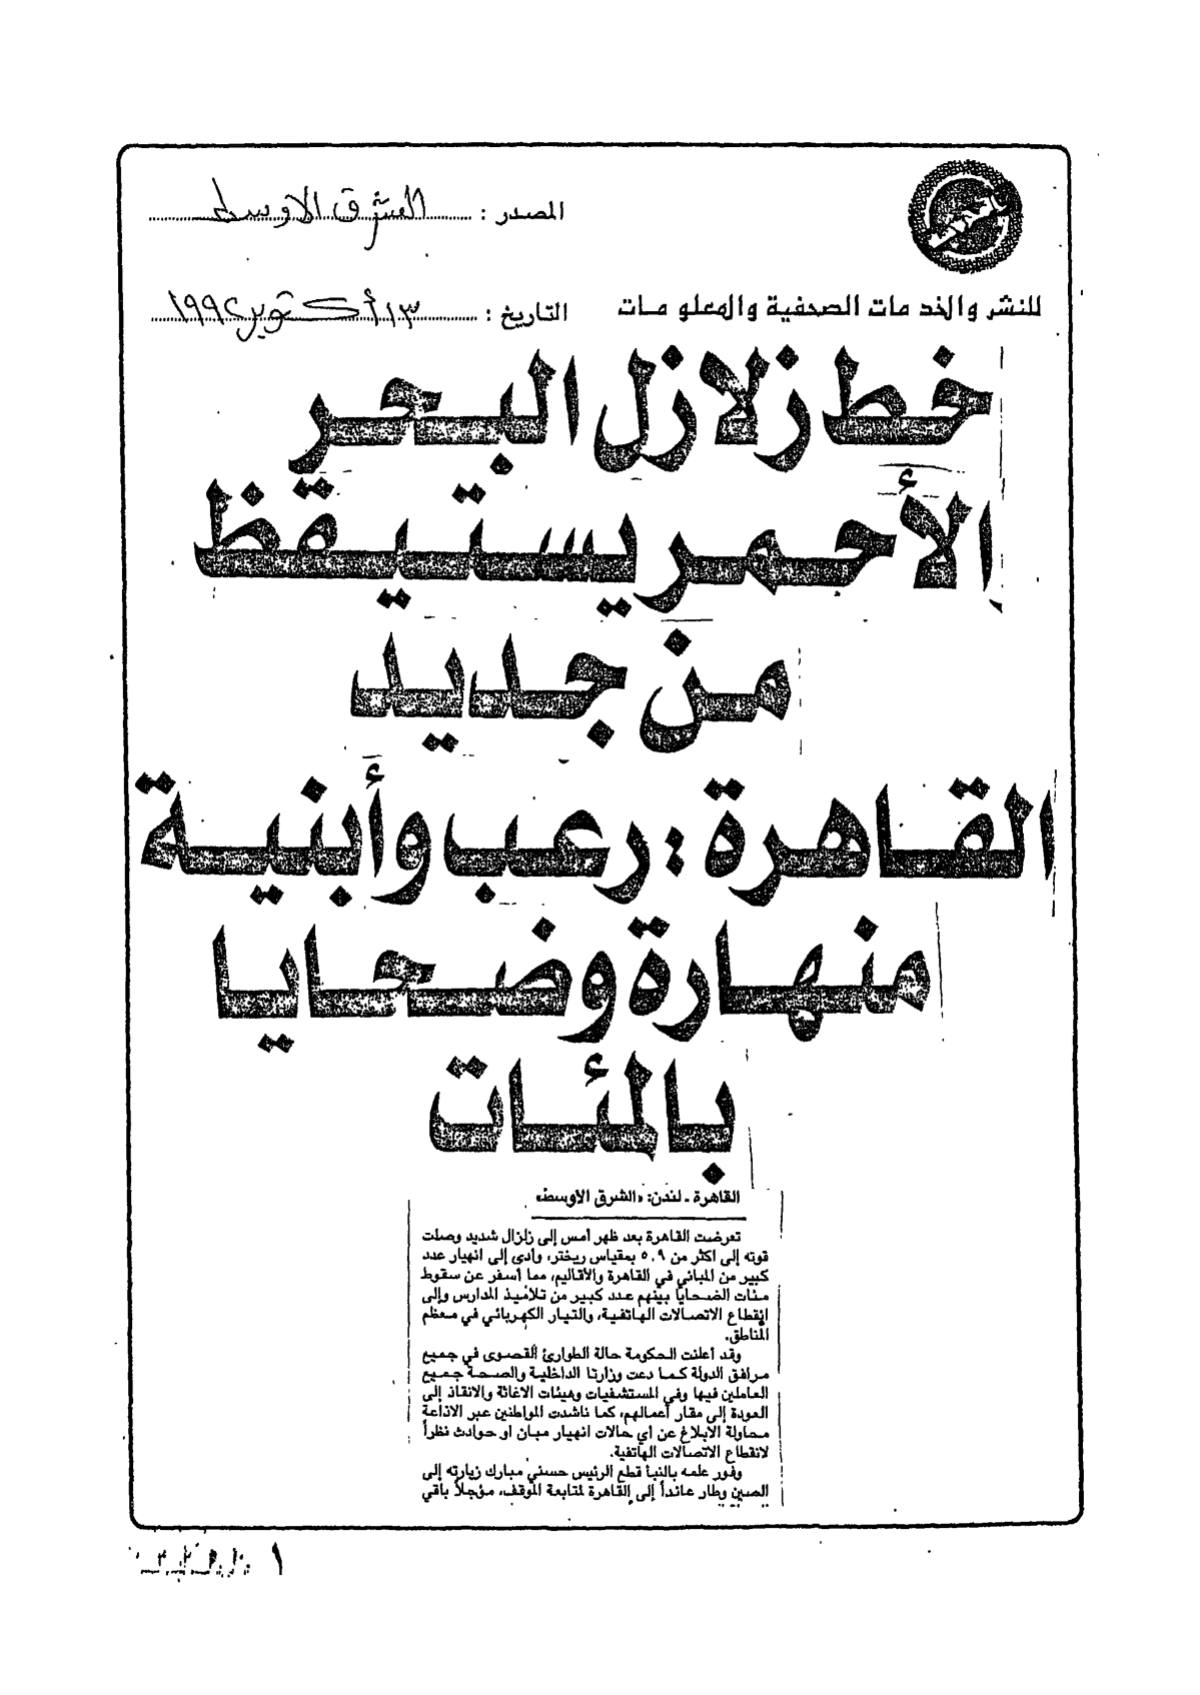 المصدر : الشرق الاوسط
للنشر والخدمات الصحفية والمعلومات
التاريخ : ١٣ أكتوبر ١٩٩٢
خط زلازل البحر
الأحمر يستيقظ
من جديد
القاهرة : رعب وأبنية
منهارة وضحايا
بالمئات
القاهرة - لندن: «الشرق الأوسط»
تعرضت القاهرة بعد ظهر أمس إلى زلزال شديد وصلت
قوته إلى اكثر من ٥,٩ بمقياس ريختر، وادى إلى انهيار عدد
كبير من المباني في القاهرة والأقاليم، مما أسفر عن سقوط
مئات الضحايا بينهم عدد كبير من تلاميذ المدارس وإلى
انقطاع الاتصالات الهاتفية، والتيار الكهربائي في معظم
المناطق.
وقد أعلنت الحكومة حالة الطوارئ القصوى في جميع
مرافق الدولة كما دعت وزارتا الداخلية والصحة جميع
العاملين فيها وفي المستشفيات وهيئات الاغاثة والانقاذ إلى
العودة إلى مقار أعمالهم، كما ناشدت المواطنين عبر الاذاعة
محاولة الابلاغ عن اي حالات انهيار مبان او حوادث نظراً
لانقطاع الاتصالات الهاتفية.
وفور علمه بالنبأ قطع الرئيس حسني مبارك زيارته إلى
الصين وطار عائداً إلى القاهرة لمتابعة الموقف، مؤجلاً باقي
١